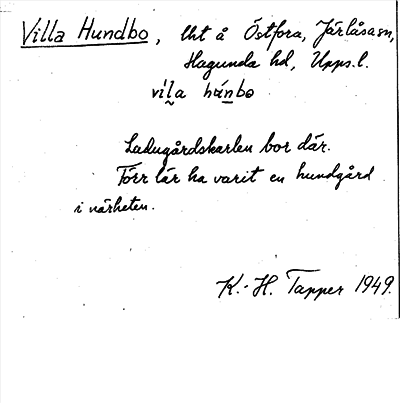 Villa Hundbo, lht å Östfora, Järlåsa sn,
Hagunda hd, Upps. l.
vil̰a hɯ́nbo
Ladugårdskarlen bor där.
Förr lär ha varit en hundgård
i närheten.
K.-H. Tapper 1949.